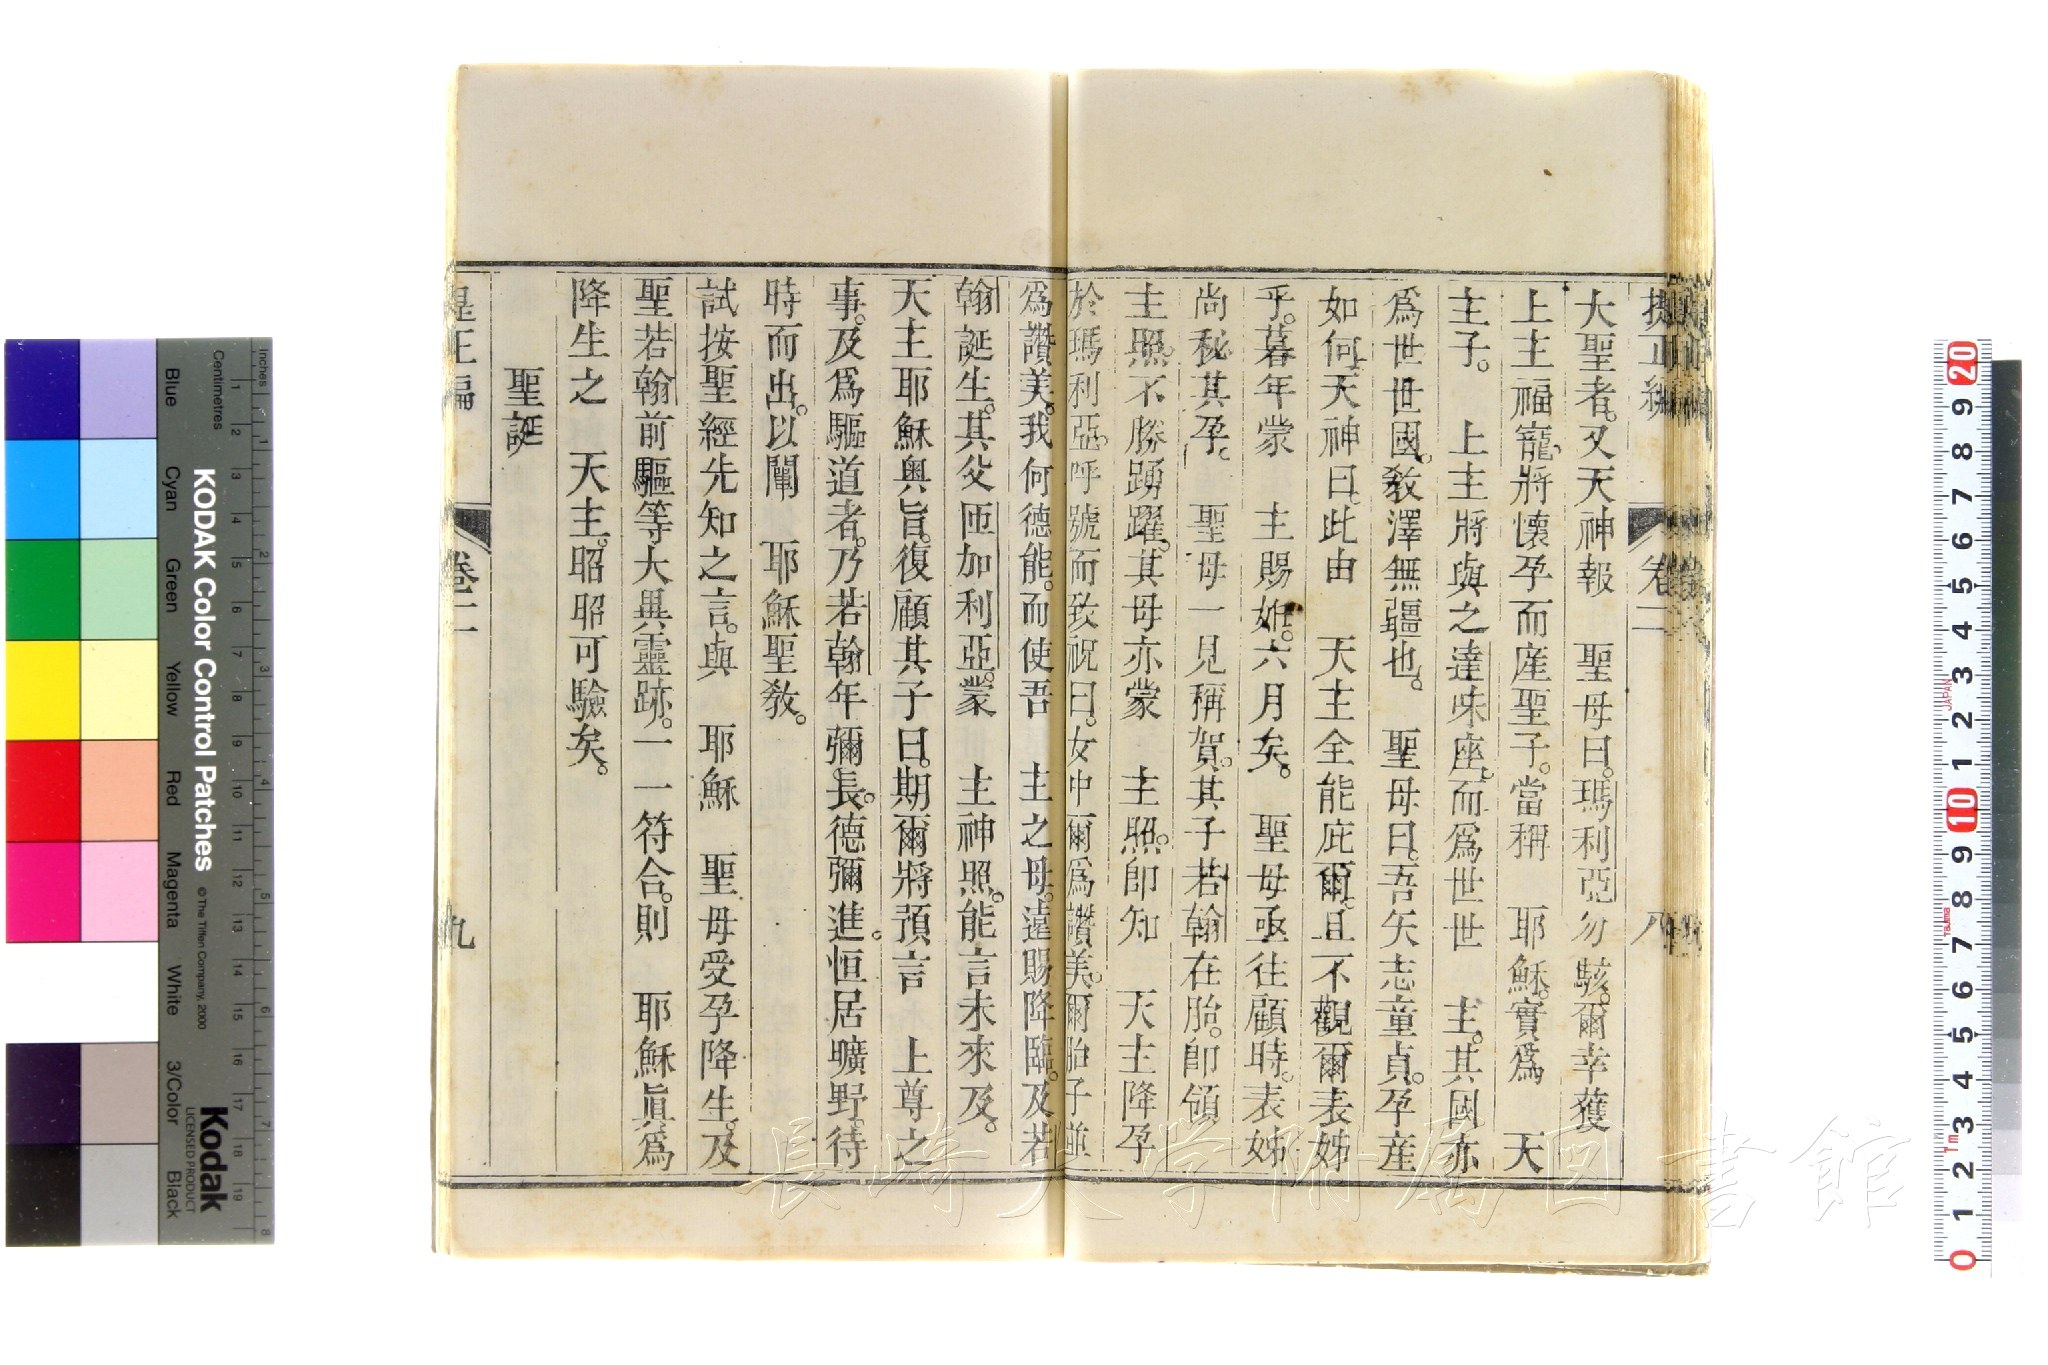 提正編 卷二 八
大聖者。又天神報 聖母曰。瑪利亞勿駭。爾幸獲
上主福寵。將懷孕而産聖子。當稱 耶穌。實爲 天
主子。 上主將與之達味座。而爲世世 主。其國亦
爲世世國。敎澤無疆也。 聖母曰。吾矢志童貞。孕産
如何。天神曰。此由 天主全能庇爾。且不觀爾表姊
乎。暮年蒙 主賜姙。六月矣。 聖母亟往顧時。表姊
尚秘其孕。 聖母一見稱賀。其子若翰在胎。卽領
主照。不勝踴躍。其母亦蒙 主照。卽知 天主降孕
於瑪利亞。呼號而致祝曰。女中爾爲讚美。爾胎子並
爲讚美。我何德能。而使吾 主之母。遠賜降臨。及若
翰誕生。其父匝加利亞。蒙 主神照。能言未來。及
天主耶穌奧旨。復顧其子曰。期爾將預言 上尊之
事。及爲驅道者。乃若翰年彌長。德彌進。恒居曠野。待
時而出。以闡 耶穌聖敎。
試按聖經先知之言。與 耶穌 聖母受孕降生。及
聖若翰前驅等大異靈跡。一一符合。則 耶穌眞爲
降生之 天主。昭昭可驗矣。
聖誕
提正編 卷二 九
KODAK Color Control Patches
© The Tiffen Company, 2000
Kodak
LICENSED PRODUCT
Inches
Centimetres
Blue
Cyan
Green
Yellow
Red
Magenta
White
3/Color
Black
JAPAN
長崎大学附属図書館